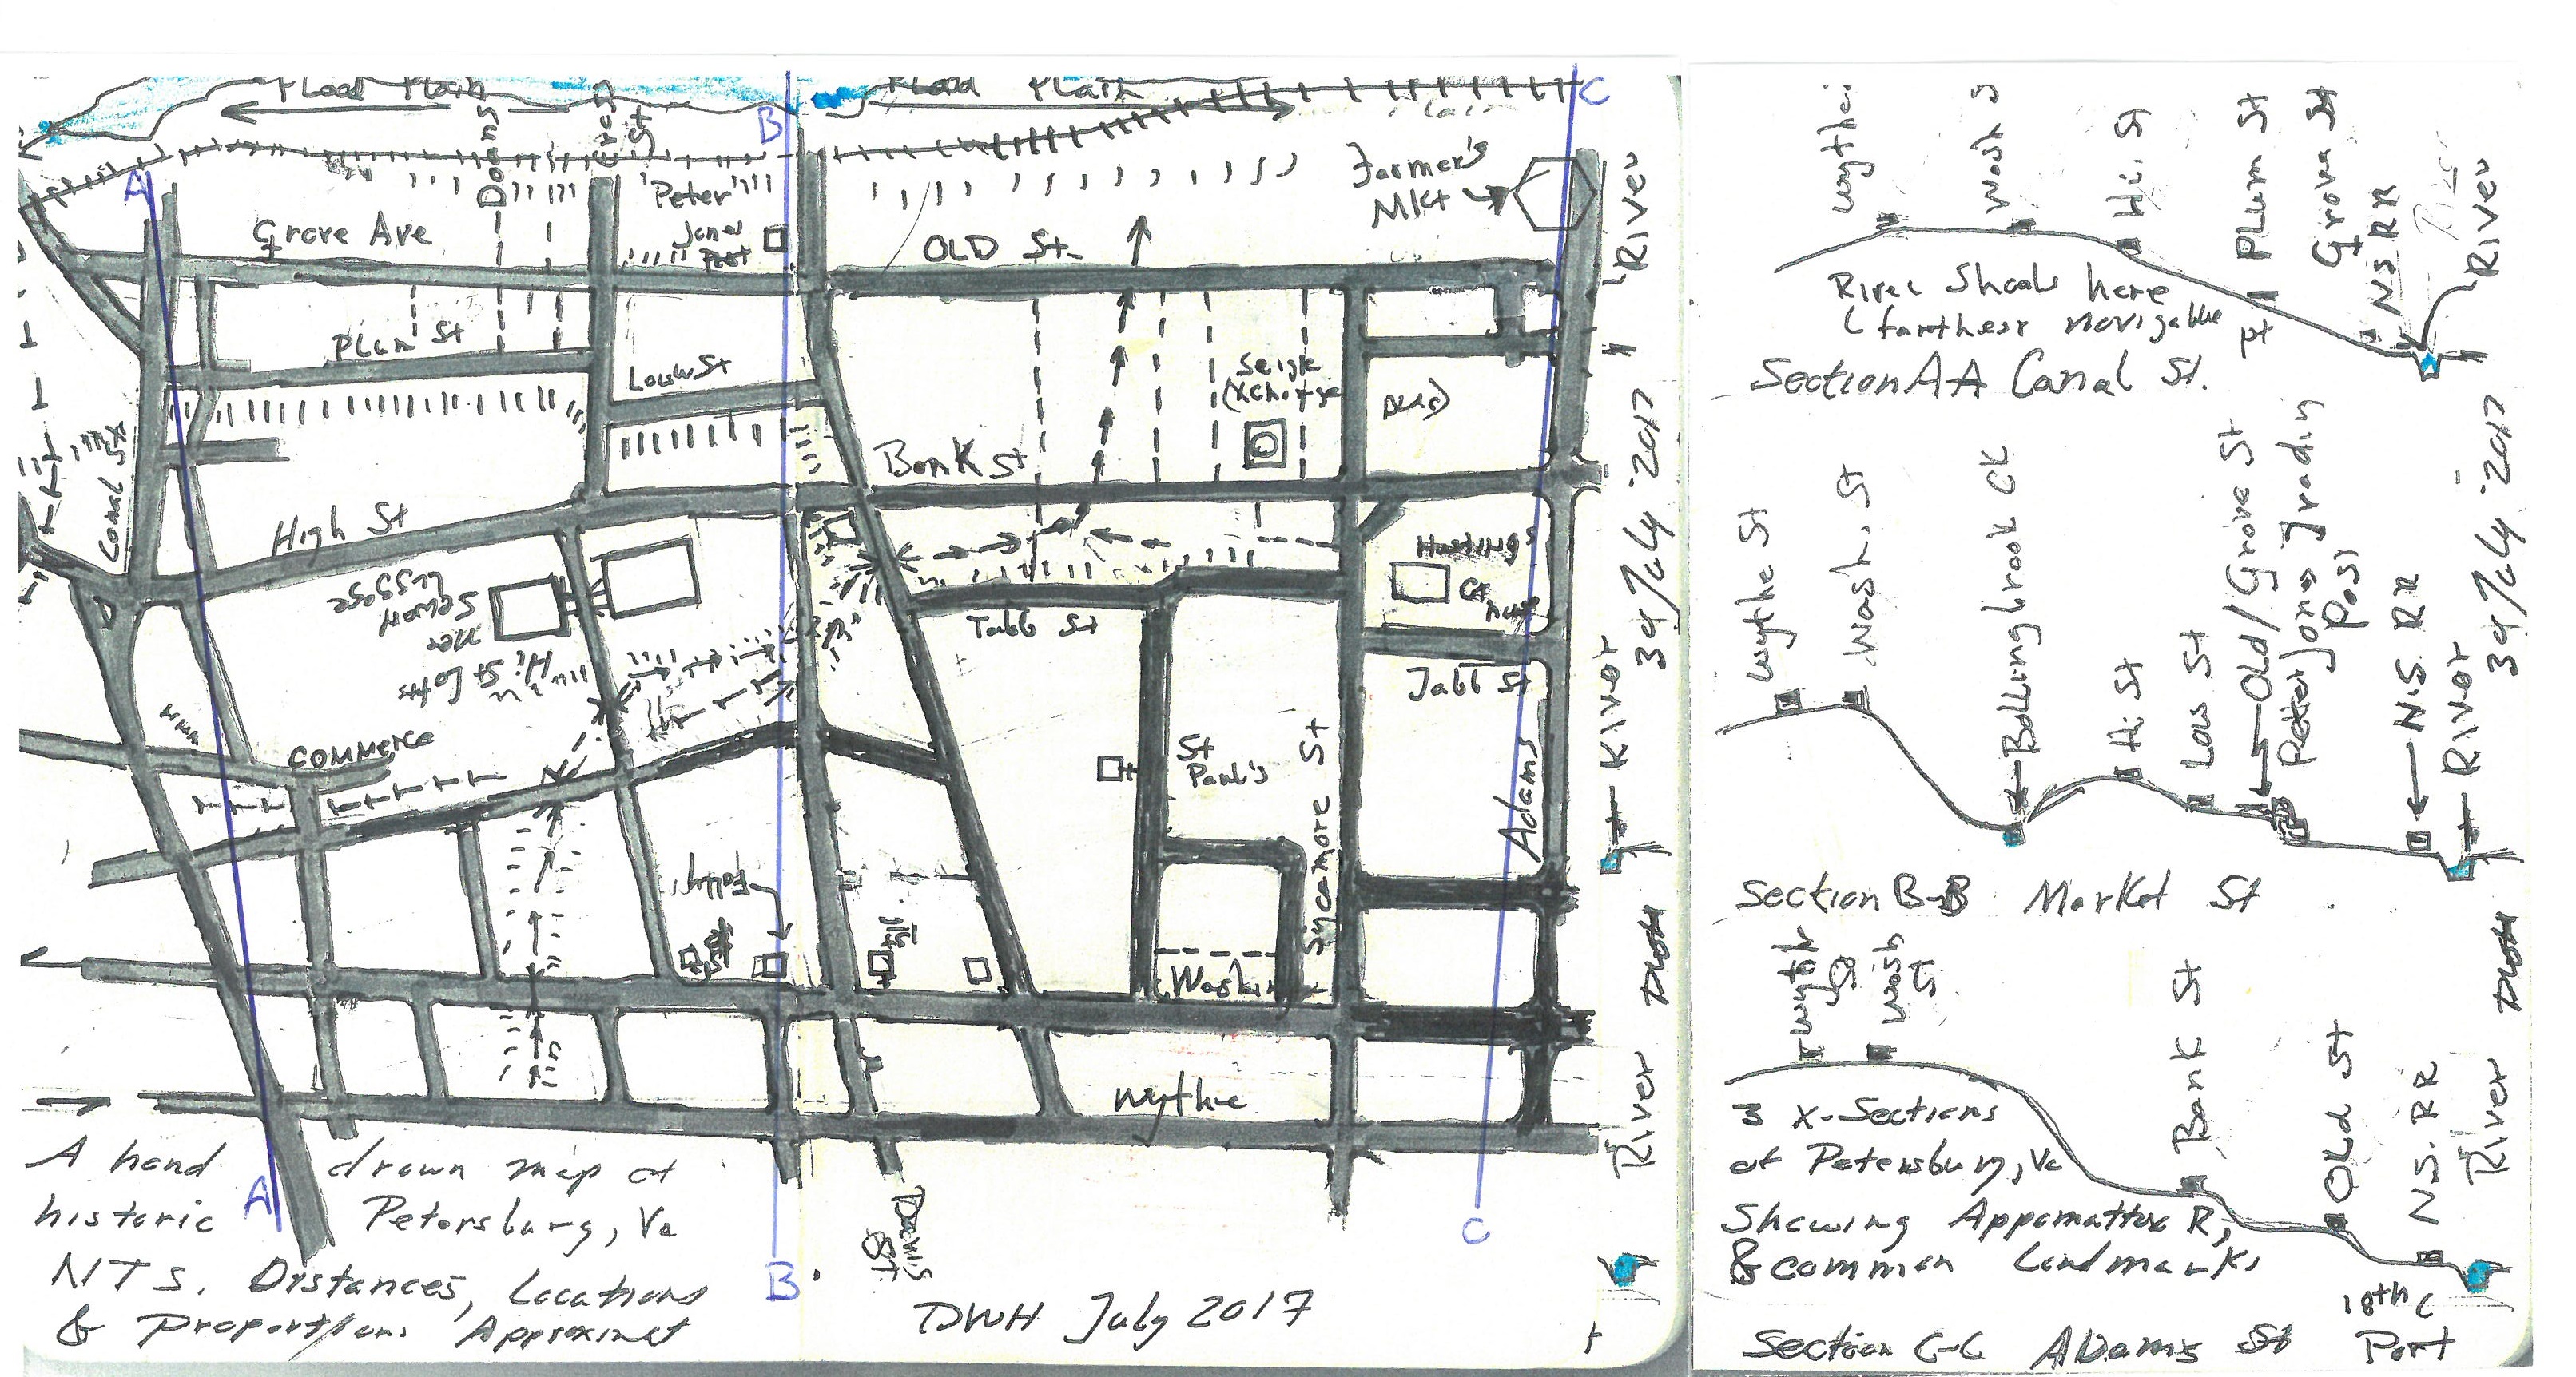 Flood Plain
Flood Plain
C
B
A
Doans
Cross
St
Peter
Jones
Post
Farmer's
Mkt
Grove Ave
OLD St.
River
Plum St
Low St
Canal St
High St
Bank St
Seige
Hustings
Ct
Tabb St
Tabb St
Hi St Lofts
Commerce
St
Paul's
Sycamore St
Adams
Folly
Washin
Wythe
River
3d/July '2017
DWH
River
A hand drawn map of
historic Petersburg, Va
NTS. Distances, Locations
& Proportions Approximat
A
B
C
St.
DWH July 2017
Wash S
Hi. St
Plum St
Grove St
NS RR
River
River Shoals here
(farthest navigable
pt
Section AA Canal St.
Wythe St
Wash. St
Bollingbrook CK
Hi St
Low St
Old/Grove St
Peter Jones Trading
Post
N.S. RR
River
3d/July '2017
Section B-B Market St
Wythe
St
Wash
St
Bank St
Old St
N.S. RR
River
DWH
3 X-Sections
at Petersburg, Va
Showing Appomattox R,
& common Landmarks
18th C
Port
Section C-C Adams St